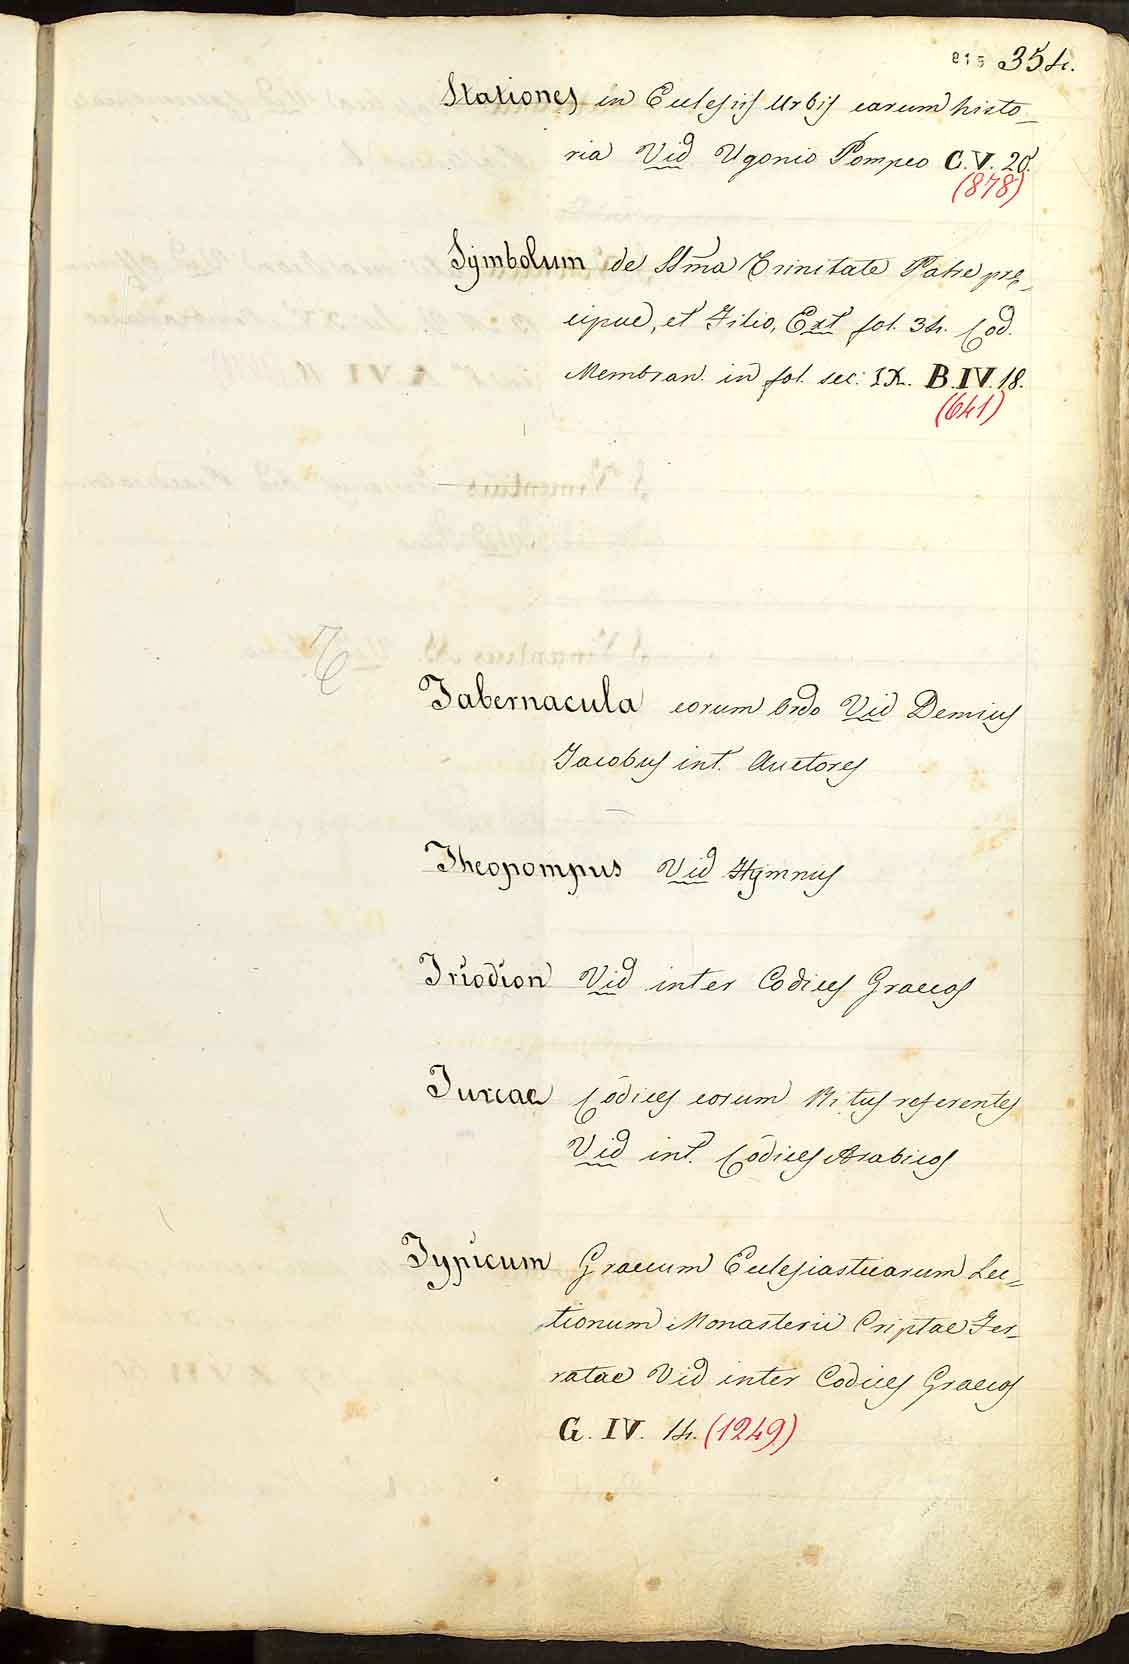 815 354.
Stationes in Eclesiis Urbis earum histo-
ria Vid Ugonio Pompeo C.V. 20.
(878)
Symbolum de SSma Trinitate Patre prę-
cipue, et Filio, Ext fol. 34. Cod.
Membran. in fol. sec: IX. B.IV.18.
(641)
T.
Tabernacula eorum Ordo Vid Demius
Jacobus int. Auctores
Theopompus Vid Hymnus
Triodion Vid inter Codices Graecos
Turcae Codices eorum Ritus referentes
Vid int. Codices Arabicos
Typicum Graecum Eclesiasticarum Lec-
tionum Monasterii Criptae Fer-
ratae Vid inter Codices Graecos
G. IV. 14. (1249)